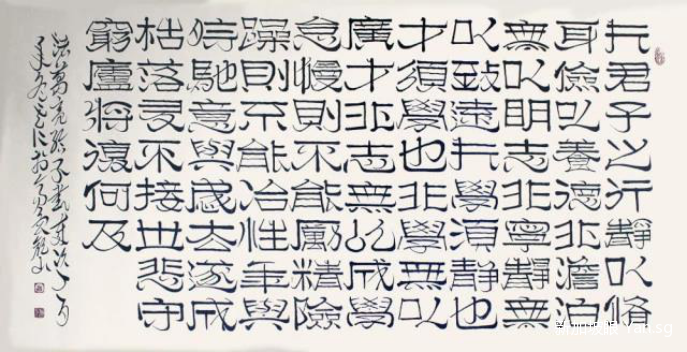 夫君子之行靜以脩
身儉以養德非澹泊
無以明志非寧靜無
以致遠夫學須靜也
才須學也非學無以
廣才非志無以成學
怠慢則不能勵精險
躁則不能冶性年與
時馳意與歲去遂成
枯落多不接世悲守
窮廬將復何及
諸葛亮誡子書
新加坡眼 Yan.sg